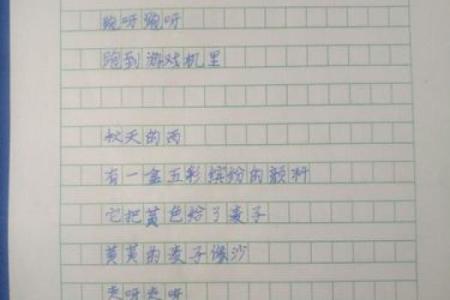 跑呀跑呀
跑到游戏机里
秋天的雨
有一盒五彩缤纷的颜料
它把黄色给了麦子
黄黄的麦子像沙
走呀走呀